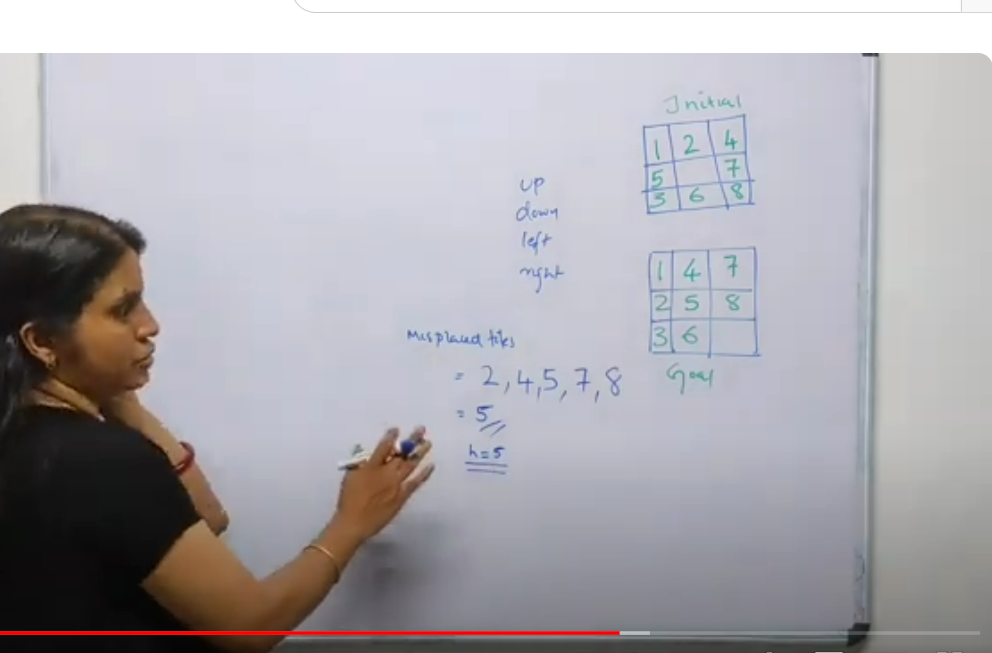 Initial
1 2 4
5 7
3 6 8
up
down
left
right
1 4 7
2 5 8
3 6
Goal
Misplaced tiles
= 2, 4, 5, 7, 8
= 5
h=5